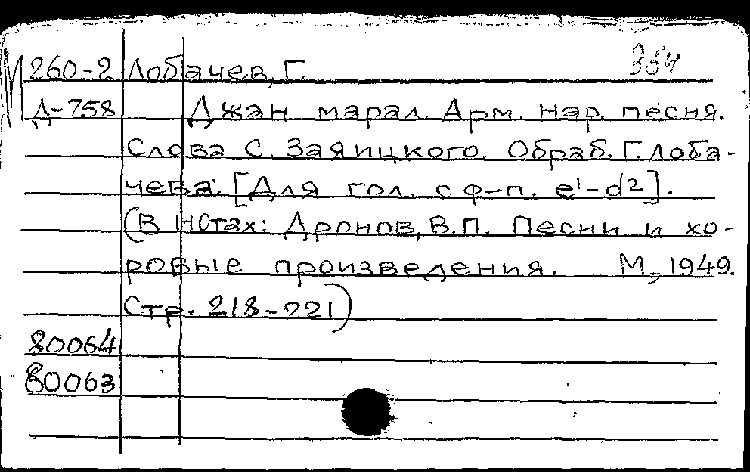 М260-2 Лобачев, Г. 354
Д-758 Джан марал. Арм. нар. песня.
Слова С. Заяицкого. Обраб. Г. Лоба-
чева. [Для гол. с ф-п. e¹-d²].
(В нотах: Дронов, В.П. Песни и хо-
ровые произведения. М., 1949.
Стр. 218-221)
80064
80063